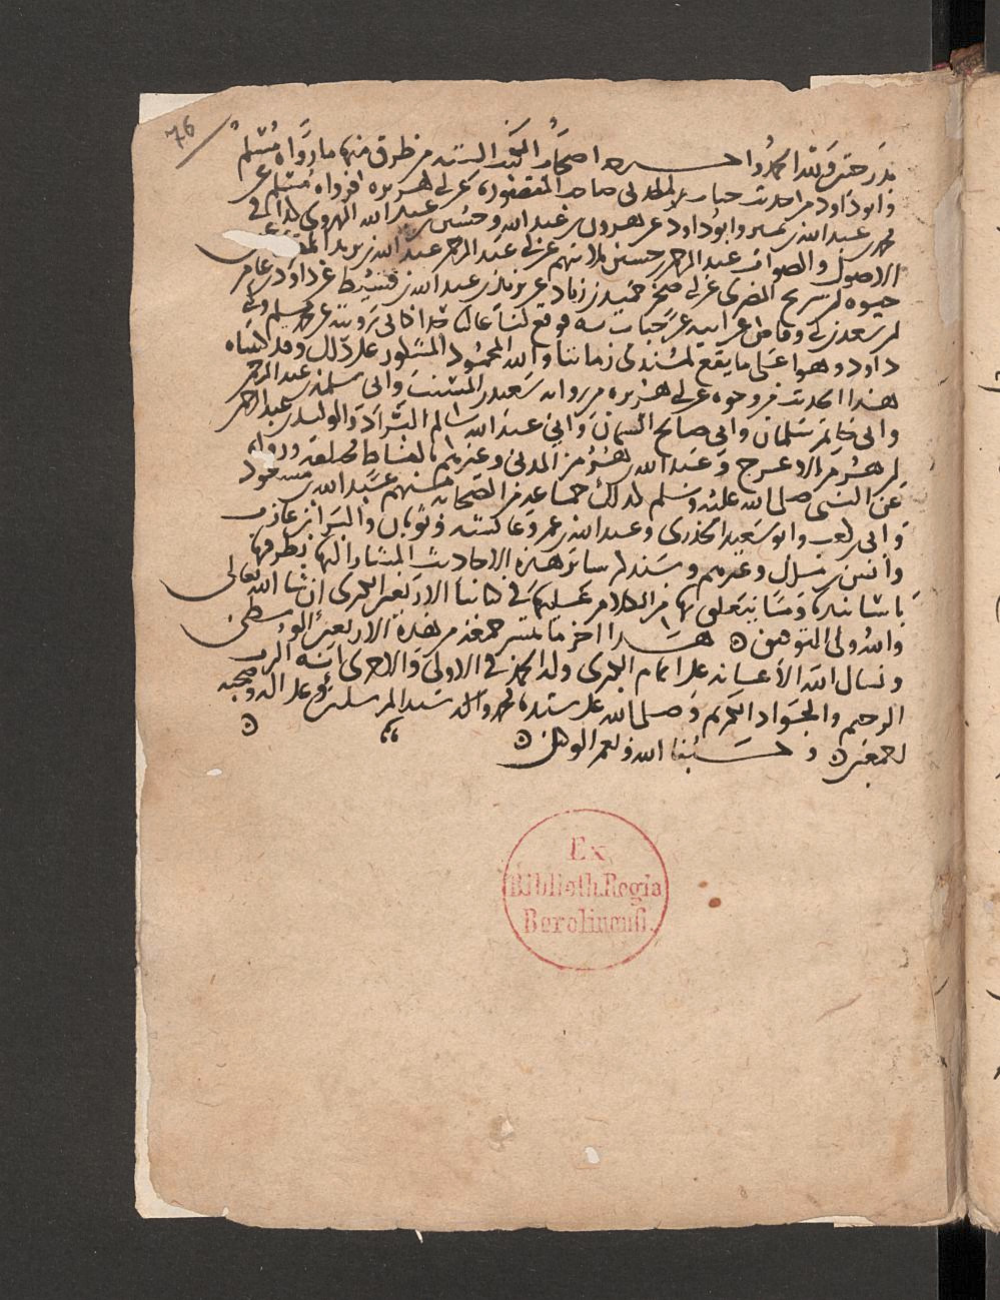 76
بذر حتى ولله الحمد واخرجه اصحاب الكتب الستة من طرق منها ما رواه مسلم
وابو داود من حديث خباب المدني صاحب المقصورة عن ابي هريرة فرواه مسلم عن
محمد بن عبد الله بن نمير وابو داود عن هرون بن عبد الله وحسين عبد الله الهروي كذا في
الاصول والصواب عبد الرحمن بن حسين ثلاثتهم عن ابي عبد الرحمن عبد الله بن يزيد المقرئ عن
حيوة بن شريح المصري عن ابي صخر حميد بن زياد عن يزيد بن عبد الله بن قسيط عن داود بن عامر
بن سعد بن ابي وقاص عن ابيه عن خباب به فوقع لنا عاليا كاني رويته عن مسلم وابي
داود وهو اعلى ما يقع لمسند في زماننا ولله المحمود المشكور على ذلك وقد رويناه
هذا الحديث من وجوه عن ابي هريرة من رواية سعيد بن المسيب وابي سلمة بن عبد الرحمن
وابي حازم سلمان وابي صالح السمان وابي عبد الله سالم البراد والوليد بن عبد الرحمن
بن هرمز الاعرج وعبد الله بن هرمز المدني وغيرهم بالفاظ مختلفة ورواه
عن النبي صلى الله عليه وسلم كذلك جماعة من الصحابة منهم عبد الله بن مسعود
وابي بن كعب وابو سعيد الخدري وعبد الله بن عمر وعائشة وثوبان والبراء بن عازب
وانس بن مالك وغيرهم وسنذكر سائر هذه الاحاديث المشار اليها بطرقها
باسانيدها وما يتعلق بها من الكلام عليها في كتابنا الاربعين الكبرى ان شا الله تعالى
والله ولي التوفيق ۞ هذا اخر ما تيسر جمعه من هذه الاربعين الوسطى
ونسال الله الاعانة على اتمام الكبرى وله الحمد في الاولى والاخرى انه الرب
الرحيم والجواد الكريم وصلى الله على سيدنا محمد واله سيد المرسلين وعلى اله وصحبه
اجمعين ۞ وحسبنا الله ونعم الوكيل ۞
Ex
Biblioth. Regia
Berolinensi.